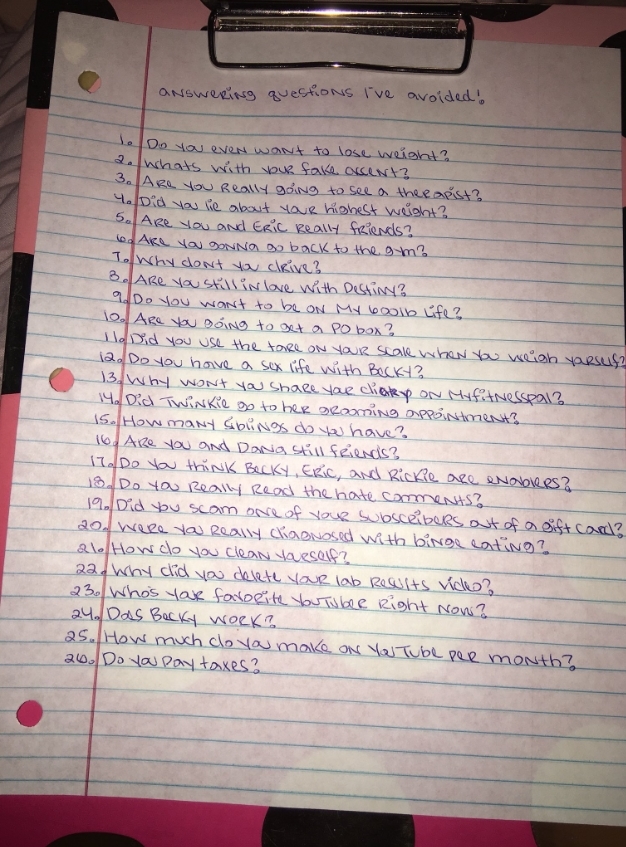 answering questions I've avoided!
1. Do you even want to lose weight?
2. Whats with your fake accent?
3. Are you really going to see a therapist?
4. Did you lie about your highest weight?
5. Are you and Eric Really friends?
6. Are you gonna go back to the gym?
7. Why dont you drive?
8. Are you still in love with Destiny?
9. Do you want to be on My 600lb Life?
10. Are you going to get a PO box?
11. Did you use the tare on your scale when you weigh yourself?
12. Do you have a sex life with Becky?
13. Why wont you share your diary on Myfitnesspal?
14. Did Twinkie go to her grooming appointment?
15. How many siblings do you have?
16. Are you and Dana still friends?
17. Do you think Becky, Eric, and Rickie are enablers?
18. Do you Really Read the hate comments?
19. Did you scam one of your subscribers out of a gift card?
20. Were you Really diagnosed with binge eating?
21. How do you clean yourself?
22. Why did you delete your lab Results video?
23. Who's your favorite YouTuber Right Now?
24. Does Becky work?
25. How much do you make on YouTube per month?
26. Do you pay taxes?